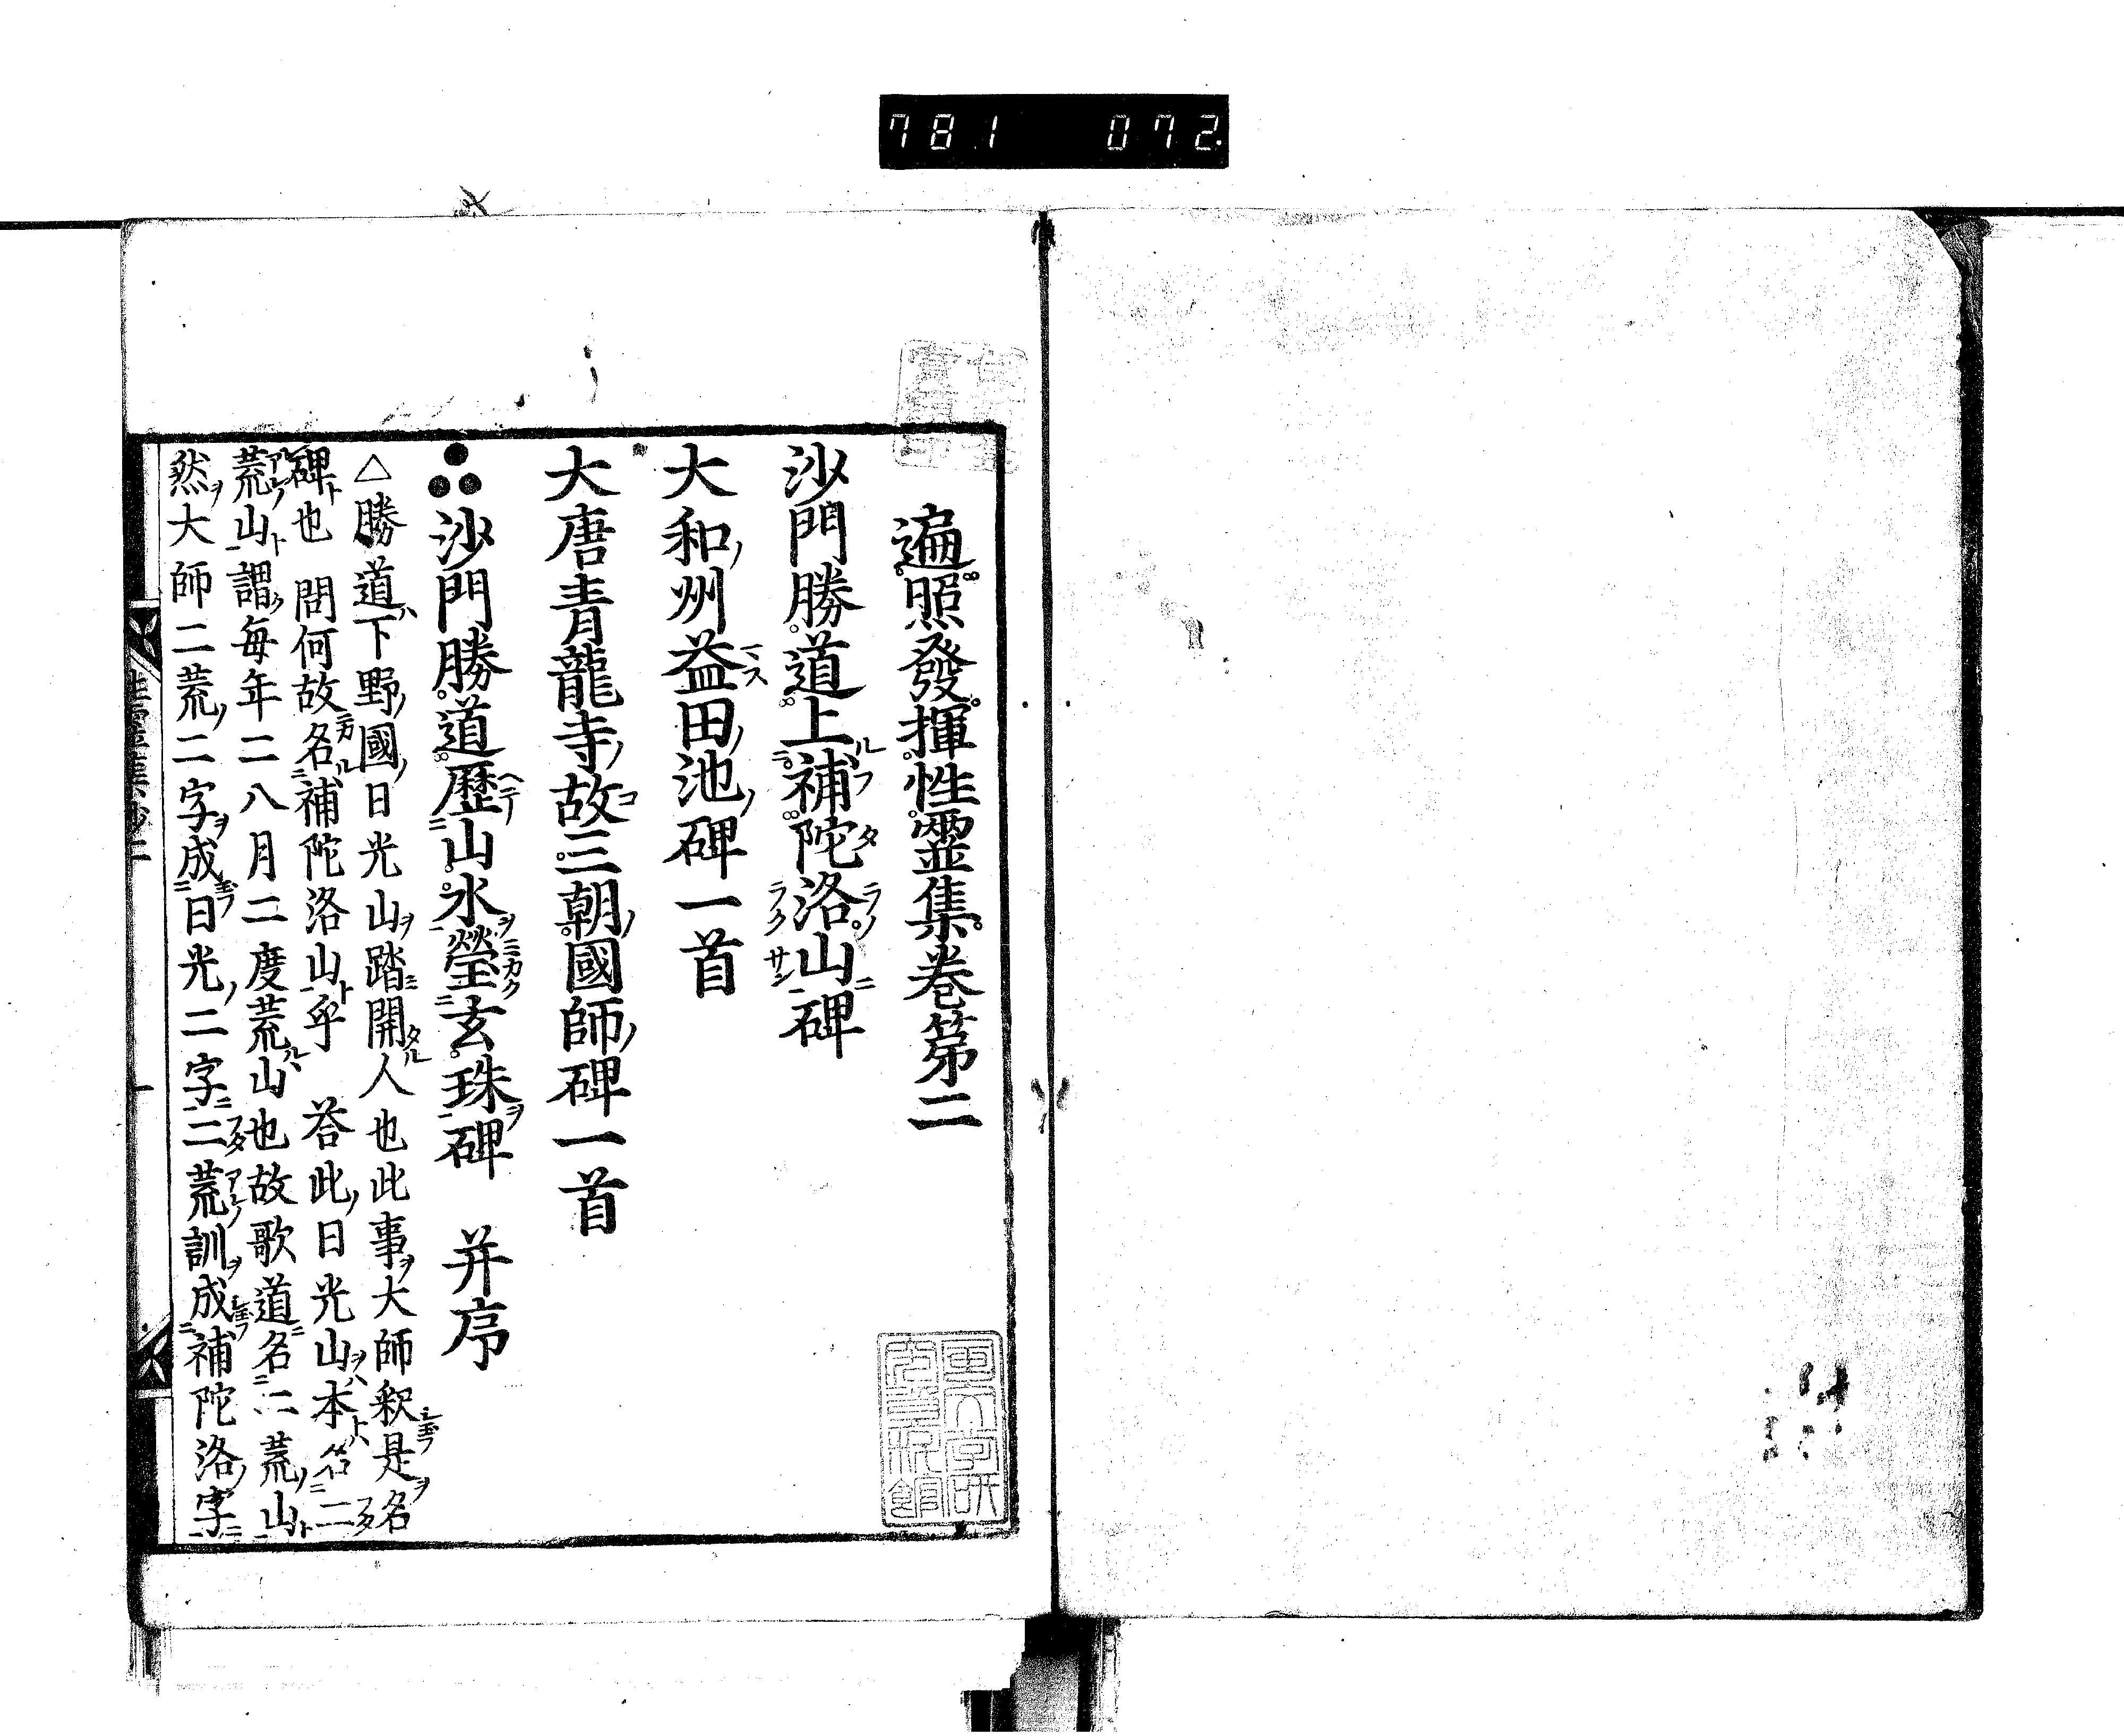 781 072
遍照發揮性靈集卷第二
沙門勝道上補陀洛山碑
大和州益田池碑一首
大唐青龍寺故三朝國師碑一首
沙門勝道歷山水瑩玄珠碑 并序
△勝道下野國日光山踏開人也此事大師釈是名
碑也 問何故名補陀洛山乎 荅此日光山本名二
荒山謂每年二八月二度荒山也故歌道名二荒山
然大師二荒二字成日光二字二荒訓成補陀洛字